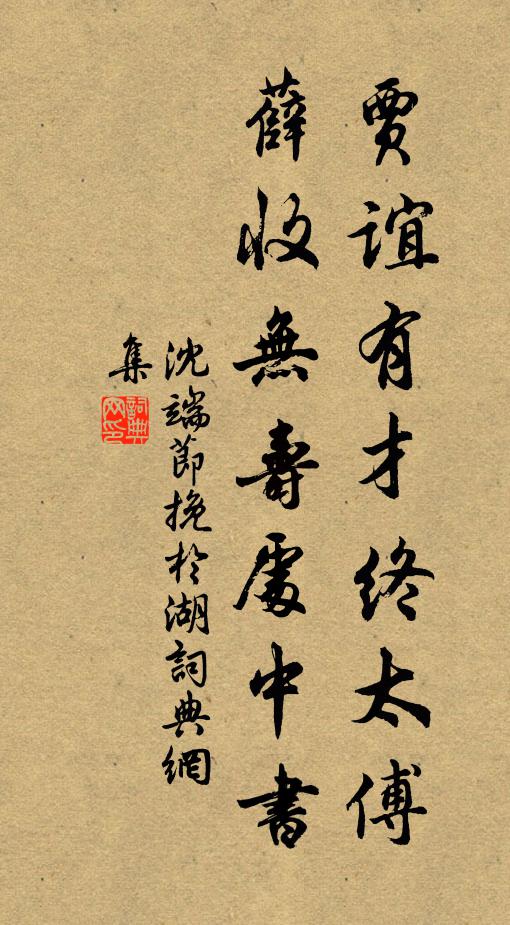 賈誼有才終太傅
薛收無壽處中書
沈端節挽於湖詞典網
集
詞典
网印